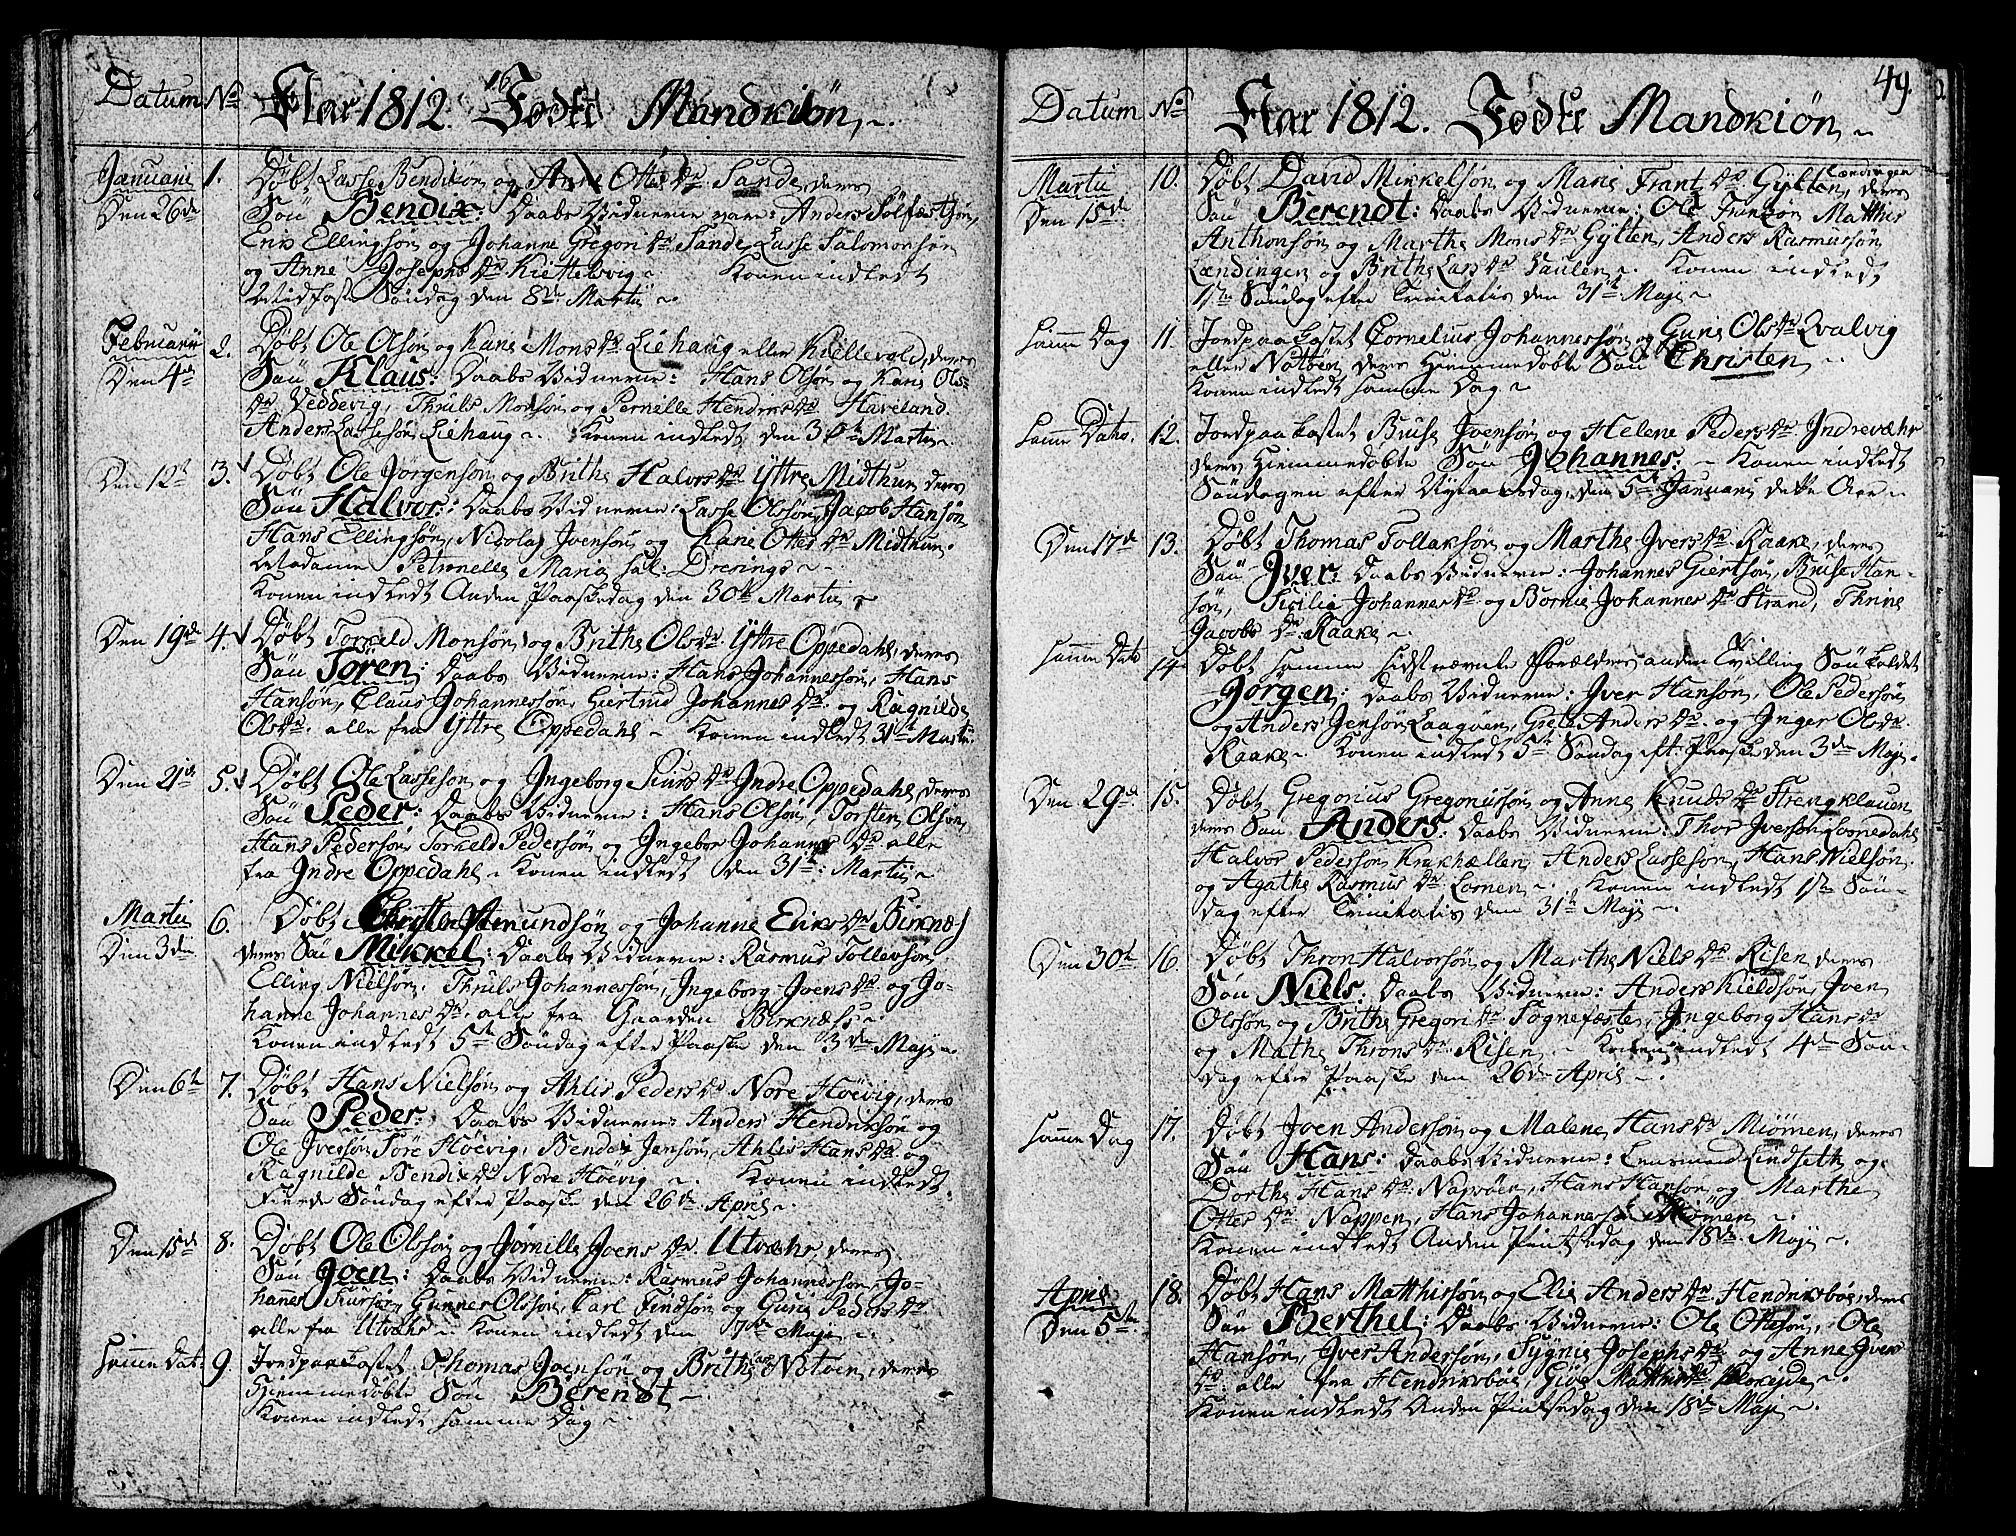 Datum No Aar 1812. Fødte Mandkiøn,
Januarii 1. Døbt Lasse Bendixøn og Anne Ottes Dr Sande, deres
Den 26de Søn Bendix: Daabs Vidnerne vare: Anders Sølfæstsøn,
Erik Ellingsøn og Johanne Gregori Dr Sande, Lasse Salomonsøn
og Anne Josephs Dr Kiettelsvig Konen indledt
Midfaste Søndag den 8de Martii
Februarii 2. Døbt Ole Olsøn og Kari Mons Dr Liehaug eller Kiellevold, deres
Den 4de Søn Klaus: Daabs Vidnerne: Hans Olsøn og Kari Ols
Dr Veddevig, Thruls Monsøn og Pernille Hendrics Dr Haveland.
Anders Lassesøn Liehaug. Konen indledt den Martii
Den 12te 3. Døbt Ole Jørgensøn og Brithe Halvors Dr Yttre Midthun, deres
Søn Halvor: Daabs Vidnerne: Lasse Olssøn, Jacob Hansøn,
Hans Ellingsøn, Nicolaj Ivensøn og Karie Ottes Dr Midthun.
Madame Petronelle Maria Sal: Drerings
Konen indledt Anden Paaskedag den 30te Martii
Den 19de 4. Døbt Torkeld Monsøn og Brithe Ols Dr Yttre Oppedahl, deres
Søn Søren: Daabs Vidnerne: Hans Johannessøn, Hans
Hansøn, Claus Johannessøn, Giertrud Johannes Dr og Ragnilde
Ols Dr alle fra Yttre Oppedahl Konen indledt 31te Martii
Den 21de 5. Døbt Ole Lassesøn og Ingeborg Siurs Dr Indre Oppedahl, deres
Søn Peder: Daabs Vidnerne: Hans Olsøn, Torsten Olsøn
Hans Pedersøn, Torkeld Pedersøn og Ingebor Johannes Dr alle
fra Indre Oppedahl Konen indledt den 31te Martii
Martii 6. Døbt Amundsøn og Johanne Eriks Dr Birknæs
Den 3de deres Søn Mikkel: Daabs Vidnerne: Rasmus Tollevsøn
Elling Nielsøn, Thruls Johannessøn, Ingeborg Joens Dr og Jo-
hanne Johannes Dr, alle fra Gaarden Birknæss
Konen indledt 5te Søndag efter Paaske den 3de Maji
Den 6te 7. Døbt Hans Nielsøn og Ahlis Peders Dr Nore Høevig, deres
Søn Peder: Daabs Vidnerne: Anders Hendriksøn og
Ole Iversøn Søre Høevig, Bendix Jensøn, Ahlis Hans Dr og
Ragnilde Bendix Dr Nore Høevig Konen indledt
Fierde Søndag efter Paaske den 26de April
Den 15de 8. Døbt Ole Olssøn og Jørnille Joens Dr Utvæhr, deres
Søn Joen: Daabs Vidnerne: Rasmus Johannessøn, Jo-
hannes Siursøn, Gunner Olssøn, Carl Findsøn og Gurie Peders Dr
alle fra Utvæhr Konen indledt den 7de Maji
Samme Dat: 9. Jordpaakastet Thomas Joensøn og Brithe Notøen, deres
Hjemmedøbte Søn Berendt
Konen indledt samme Dag
49.
Datum No Aar 1812. Fødte Mandkiøn
Martii 10. Døbt David Mikkelsøn og Marie Frants Dr Gylten, deres
Lændingen
Den 15de Søn Berendt: Daabs Vidnerne: Ole Frantsøn Matthis
Anthonsøn og Marthe Mons Dr Gylten, Anders Rasmussøn
Lændingen og Brithe Lars Dr Saulen. Konen indledt
1ste Søndag efter Trinitatis den 31te Maji
Samme Dag 11. Jordpaakastet Cornelius Johannessøn og Gurie Ols Dr Qvalvig
eller Notøen deres Hiemmedøbte Søn Christen
Konen indledt samme Dag
Samme Dato 12. Jordpaakastet Bruse Ivensøn og Helene Peders Dr Indrevæhr
deres Hiemmedøbte Søn Johannes: Konen indledt
Søndagen efter Nytaarsdag, den 5te Januarij dette Aar
Den 17de 13. Døbt Thomas Tollaksøn og Marthe Ivers Dr Raake, deres
Søn Iver: Daabs Vidnerne: Johannes Giertsøn, Bruse Han-
søn, Sicilie Johannes Dr og Bornie Johannes Dr Strand, Thrine
Jacobs Dr Raake
Samme Dato 14. Døbt samme sidst nævnte Forældres anden Tvilling Søn kaldet
Jørgen: Daabs Vidnerne: Iver Hansøn, Ole Pedersøn
og Anders Jensøn Laagøen, Grethe Anders Dr og Inger Ols Dr
Raake Konen indledt 5te Søndag eft: Paaske den 3de Maji
Den 29de 15. Døbt Gregorius Gregoriussøn og Anne Knuds Dr Strengklauen
deres Søn Anders: Daabs Vidnerne: Thor Iversøn Losnedahl
Halvor Pedersøn Krakhællen, Anders Lassesøn, Hans Nielsøn
og Agathe Rasmus Dr Losnen Konen indledt 1ste Søn-
dag efter Trinitatis den 31te Maji
Den 30te 16. Døbt Thron Halvorsøn og Marthe Niels Dr Risen, deres
Søn Niels: Daabs Vidnerne: Anders Kieldsøn, Joen
Olssøn og Brithe Gregori Dr Sognefæste, Ingeborg Hans Dr
og Mathe Throns Dr Risen Konen indledt 4de Søn-
dag efter Paaske den 26de April
Samme Dag 17. Døbt Joen Andersøn og Malene Hans Dr Miømen, deres
Søn Hans: Daabs Vidnerne: Lensmand Lindseth og
Dorthe Hans Dr Napsøen, Hans Hansøn og Marthe
Ottes Dr Nappen, Hans Johannessøn Miømen
Konen indledt Anden Pintsedag den 18de Maji
April 18. Døbt Hans Matthisøn og Elie Anders Dr Hendriksbøe, deres
Den 5te Søn Berthel: Daabs Vidnerne: Ole Ottesøn, Ole
Hansøn, Iver Andersøn, Sygnie Josephs Dr og Anne Ivers
Dr alle fra Hendriksbøe, Giøe Matthis Dr
Konen indledt Anden Pintsedag den 18de Maji